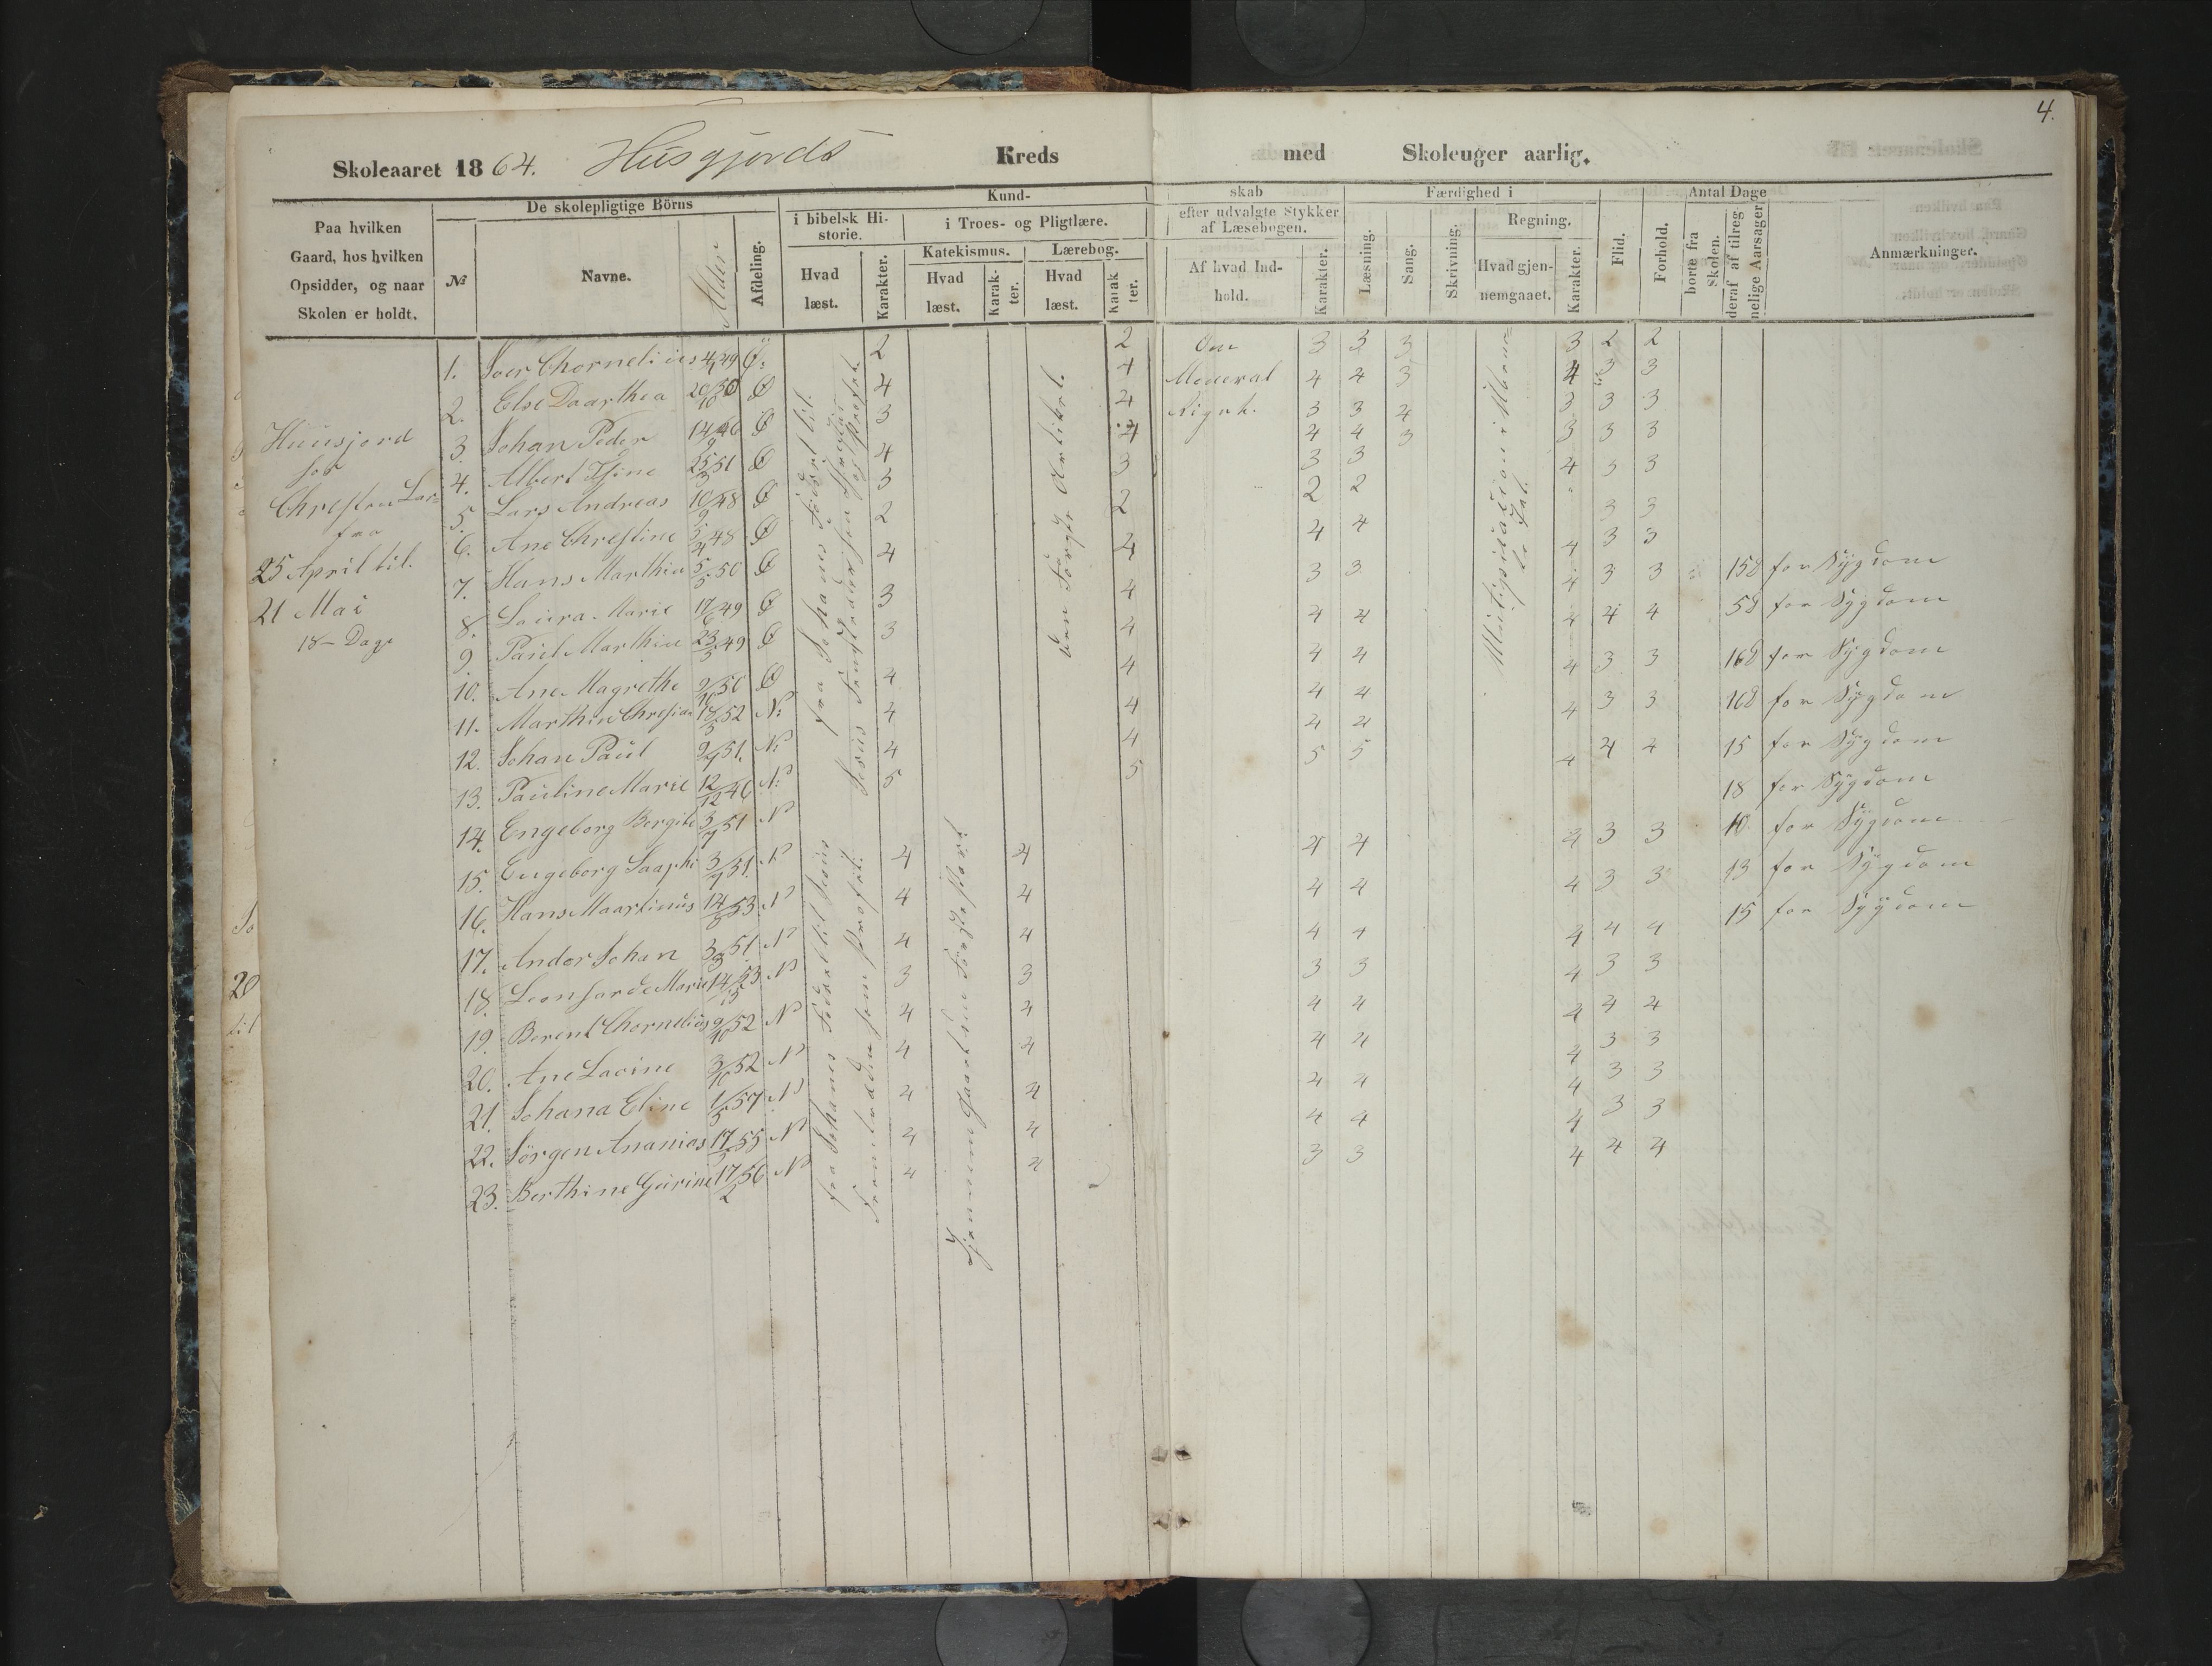 4.
Skoleaaret 1864. Husgjords Kreds med Skoleuger aarlig.
Paa hvilken Gaard, hos hvilken Opsidder, og naar Skolen er holdt.
De skolepligtige Börns
№
Navne.
Alder
Afdeling.
Kund-
i bibelsk Hi-
storie.
Hvad læst.
Karakter.
i Troes- og Pligtlære.
Katekismus.
Hvad læst.
Karak-
ter.
Lærebog.
Hvad læst.
Karak
ter.
skab
efter udvalgte Stykker
af Læsebogen.
Af hvad Ind-
hold.
Karakter.
Færdighed i
Læsning.
Sang.
Skrivning.
Regning.
Hvad gjen-
nemgaaet.
Karakter.
Flid.
Forhold.
Antal Dage
borte fra
Skolen.
deraf af tilreg-
nelige Aarsager
Anmærkninger.
Huusjord
hos
Chresten Lar=
fra
25 April til.
21 Mai
18- Dage
1. Soer Chornelius 4/1 49 Ö: 2 2 Om 3 3 3 3 2 2
2. Else Daarthea 20/10 50 Ø 4 4 Mineral 4 4 3 4 3 3
3. Johan Peder 14/9 46 Ø 3 4 Rigeh. 3 3 4 3 3 3
4. Albert Tsine 25/3 51 Ø 4 4 4 4 3 3 3 3
5. Lars Andreas 10/9 48 Ø 3 3 3 3 4 3 3
6. Ane Chrestine 5/4 48 Ø 2 2 2 2 3 3
7. Hans Marthin 5/5 50 Ø 4 4 4 4 4 3 3
8. Laura Marie 17/6 49 Ø 3 4 3 3 4 3 3 158 for Sygdom
9. Paul Marthin 23/5 49 Ø 3 4 4 4 4 4 4 58 for Sygdom
10. Ane Magrethe 9/10 50 Ø 4 4 4 4 4 3 3 168 for Sygdom
11. Marthin Chresian 18/5 52 N: 4 4 4 4 4 3 3 168 for Sygdom
12. Johan Paul 9/9 51. N: 4 4 4 4 4 4 4 15 for Sygdom
13. Pauline Marie 12/12 46 N: 5 5 5 5 18 for Sygdom
14. Engeborg Bergite 3/7 51 N 10 for Sygdom
15. Engeborg Saaphi 3/7 51. N 4 4 4 4 4 3 3 13 for Sygdom
16. Hans Maartinus 14/8 53 N 4 4 4 4 4 3 3 15 for Sygdom
17. Andor Johan 3/3 51 N 4 4 4 4 4 4 4
18. Leonharde Marie 14/5 53 N 3 3 3 3 4 3 3
19. Berent Chornelius 9/10 52 N 4 4 4 4 4 4 4
20. Ane Lavine 3/10 52 N 4 4 4 4 4 3 3
21. Johana Eline 1/5 57 N 4 4 4 4 4 3 3
22. Jörgen Ananias 17 55 N 4 4 4 4 4 3 3
23. Berthine Gurine 17/2 56 N 4 4 3 3 4 4 4
fra Johanes Födsel til.
Jesus fremtræder som Profet.
den Törste Artikel.
fra Johanes Födsel til Jesus
fremtræder som Profet.
Gjennemgaaet den Tördepart